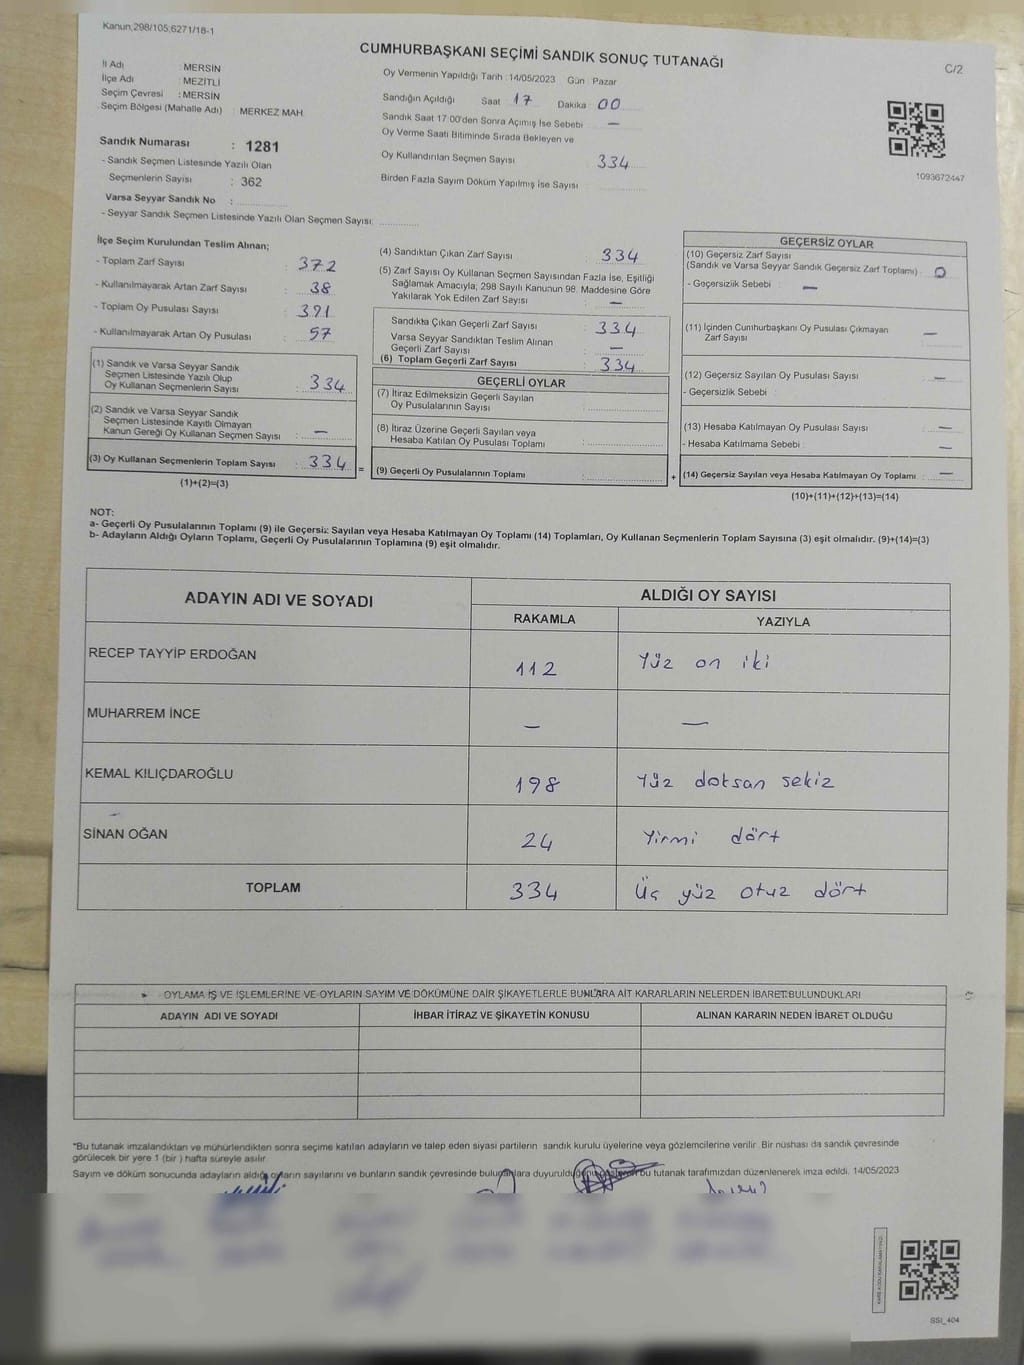 Kanun,298/105;6271/18-1
CUMHURBAŞKANI SEÇİMİ SANDIK SONUÇ TUTANAĞI
C/2
İl Adı : MERSİN
İlçe Adı : MEZİTLİ
Seçim Çevresi : MERSİN
Seçim Bölgesi (Mahalle Adı) : MERKEZ MAH.
Sandık Numarası : 1281
- Sandık Seçmen Listesinde Yazılı Olan
Seçmenlerin Sayısı : 362
Varsa Seyyar Sandık No :
- Seyyar Sandık Seçmen Listesinde Yazılı Olan Seçmen Sayısı:
Oy Vermenin Yapıldığı Tarih : 14/05/2023 Gün : Pazar
Sandığın Açıldığı Saat 17 Dakika : 00
Sandık Saat 17:00'den Sonra Açımış İse Sebebi : —
Oy Verme Saati Bitiminde Sırada Bekleyen ve
Oy Kullandırılan Seçmen Sayısı : 334
Birden Fazla Sayım Döküm Yapılmış İse Sayısı :
1093672447
İlçe Seçim Kurulundan Teslim Alınan;
- Toplam Zarf Sayısı : 372
- Kullanılmayarak Artan Zarf Sayısı : 38
- Toplam Oy Pusulası Sayısı : 391
- Kullanılmayarak Artan Oy Pusulası : 57
(1) Sandık ve Varsa Seyyar Sandık
Seçmen Listesinde Yazılı Olup
Oy Kullanan Seçmenlerin Sayısı : 334
(2) Sandık ve Varsa Seyyar Sandık
Seçmen Listesinde Kayıtlı Olmayan
Kanun Gereği Oy Kullanan Seçmen Sayısı : —
(3) Oy Kullanan Seçmenlerin Toplam Sayısı : 334
(1)+(2)=(3)
=
(4) Sandıktan Çıkan Zarf Sayısı : 334
(5) Zarf Sayısı Oy Kullanan Seçmen Sayısından Fazla İse, Eşitliği
Sağlamak Amacıyla, 298 Sayılı Kanunun 98. Maddesine Göre
Yakılarak Yok Edilen Zarf Sayısı : —
Sandıkta Çıkan Geçerli Zarf Sayısı : 334
Varsa Seyyar Sandıktan Teslim Alınan
Geçerli Zarf Sayısı : —
(6) Toplam Geçerli Zarf Sayısı : 334
GEÇERLİ OYLAR
(7) İtiraz Edilmeksizin Geçerli Sayılan
Oy Pusulalarının Sayısı :
(8) İtiraz Üzerine Geçerli Sayılan veya
Hesaba Katılan Oy Pusulası Toplamı :
(9) Geçerli Oy Pusulalarının Toplamı :
+
GEÇERSİZ OYLAR
(10) Geçersiz Zarf Sayısı
(Sandık ve Varsa Seyyar Sandık Geçersiz Zarf Toplamı) : 0
- Geçersizlik Sebebi : —
(11) İçinden Cumhurbaşkanı Oy Pusulası Çıkmayan
Zarf Sayısı : —
(12) Geçersiz Sayılan Oy Pusulası Sayısı : —
- Geçersizlik Sebebi :
(13) Hesaba Katılmayan Oy Pusulası Sayısı : —
- Hesaba Katılmama Sebebi : —
(14) Geçersiz Sayılan veya Hesaba Katılmayan Oy Toplamı : —
(10)+(11)+(12)+(13)=(14)
NOT:
a- Geçerli Oy Pusulalarının Toplamı (9) ile Geçersiz Sayılan veya Hesaba Katılmayan Oy Toplamı (14) Toplamları, Oy Kullanan Seçmenlerin Toplam Sayısına (3) eşit olmalıdır. (9)+(14)=(3)
b- Adayların Aldığı Oyların Toplamı, Geçerli Oy Pusulalarının Toplamına (9) eşit olmalıdır.
ADAYIN ADI VE SOYADI
ALDIĞI OY SAYISI
RAKAMLA YAZIYLA
RECEP TAYYİP ERDOĞAN 112 Yüz on iki
MUHARREM İNCE — —
KEMAL KILIÇDAROĞLU 198 Yüz doksan sekiz
SİNAN OĞAN 24 Yirmi dört
TOPLAM 334 Üç yüz otuz dört
OYLAMA İŞ VE İŞLEMLERİNE VE OYLARIN SAYIM VE DÖKÜMÜNE DAİR ŞİKAYETLERLE BUNLARA AİT KARARLARIN NELERDEN İBARET BULUNDUKLARI
ADAYIN ADI VE SOYADI İHBAR İTİRAZ VE ŞİKAYETİN KONUSU ALINAN KARARIN NEDEN İBARET OLDUĞU
*Bu tutanak imzalandıktan ve mühürlendikten sonra seçime katılan adayların ve talep eden siyasi partilerin sandık kurulu üyelerine veya gözlemcilerine verilir. Bir nüshası da sandık çevresinde
görülecek bir yere 1 (bir) hafta süreyle asılır.
Sayım ve döküm sonucunda adayların aldığı oyların sayılarını ve bunların sandık çevresinde bulunanlara duyurulduğunu bu tutanak tarafımızdan düzenlenerek imza edildi. 14/05/2023
SSI_404